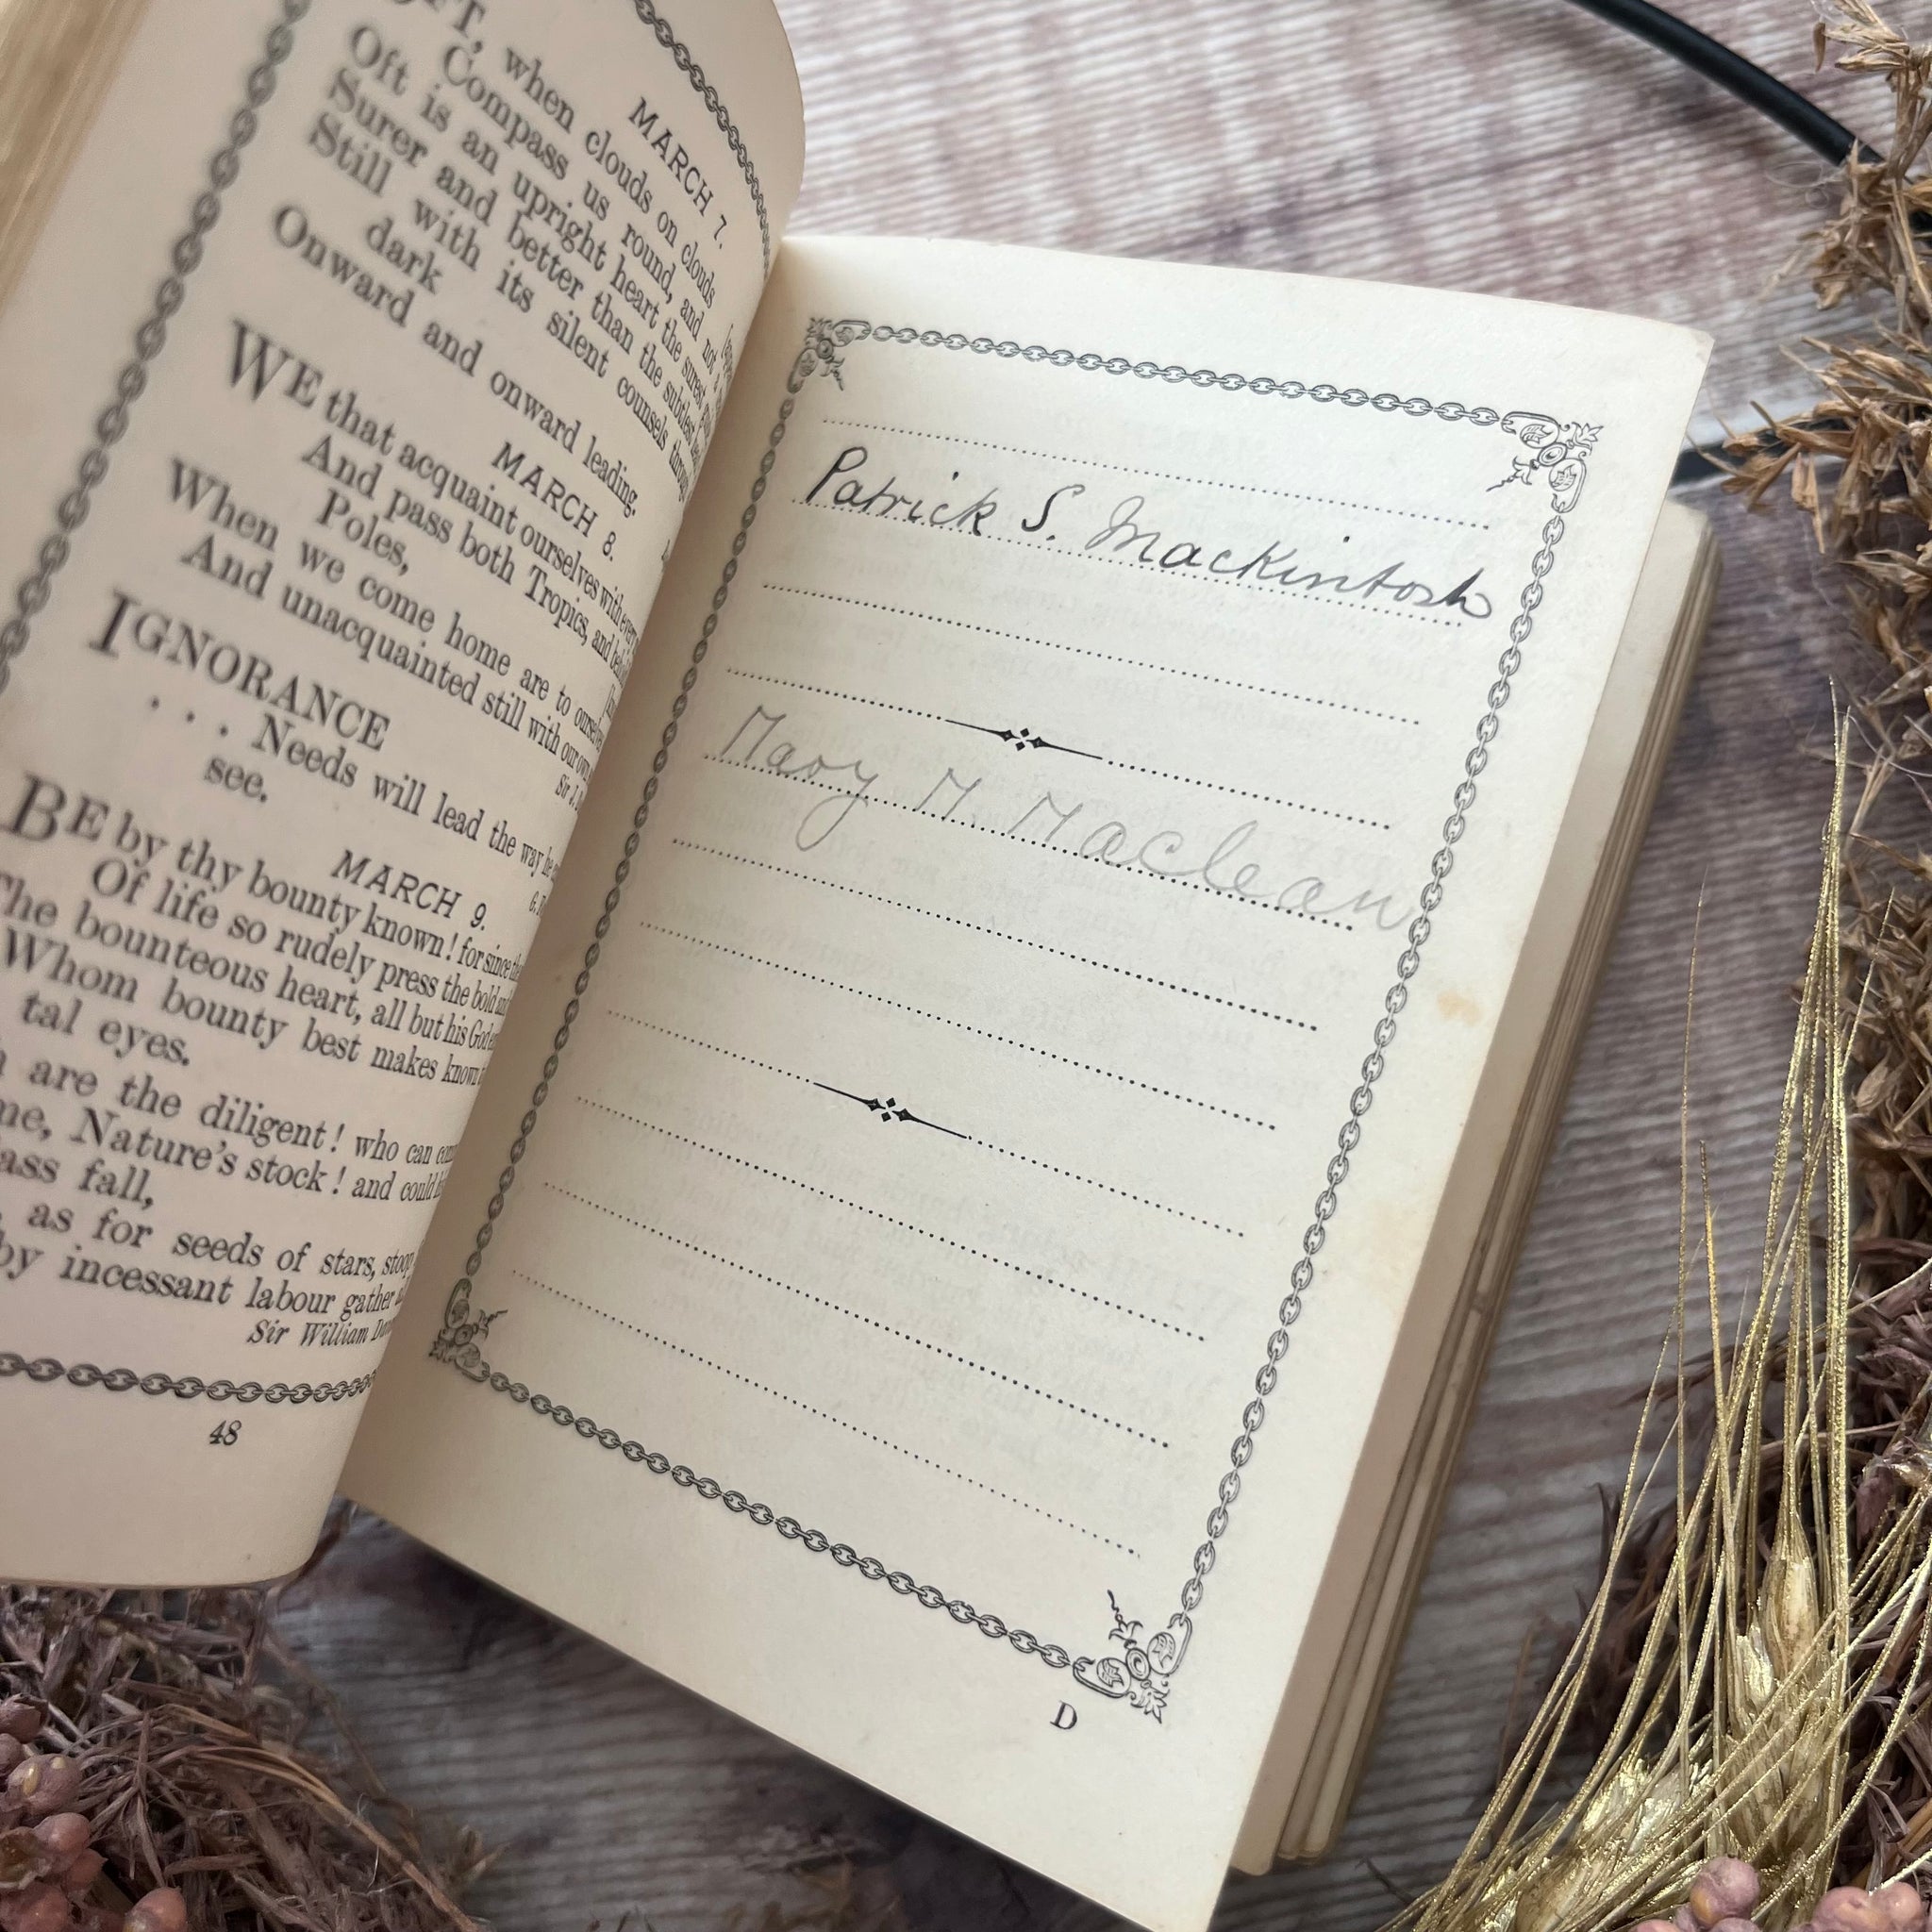 when clouds on clouds
Compass us round, and not a
Oft is an upright heart the surest
Surer and better than the subtlest
Still with its silent counsels through
dark
Onward and onward leading.
MARCH 7.
MARCH 8.
WE that acquaint ourselves with every
And pass both Tropics, and
Poles,
When we come home are to
And unacquainted still with our own
Sir J.
IGNORANCE
. . . Needs will lead the way he
see.
MARCH 9.
BE by thy bounty known! for since
Of life so rudely press the bold
The bounteous heart, all but his God
Whom bounty best makes known
tal eyes.
are the diligent! who can
Nature's stock! and could
fall,
as for seeds of stars, stoop
by incessant labour gather
Sir William
48
Patrick S. Mackintosh
Mary M. Maclean
D